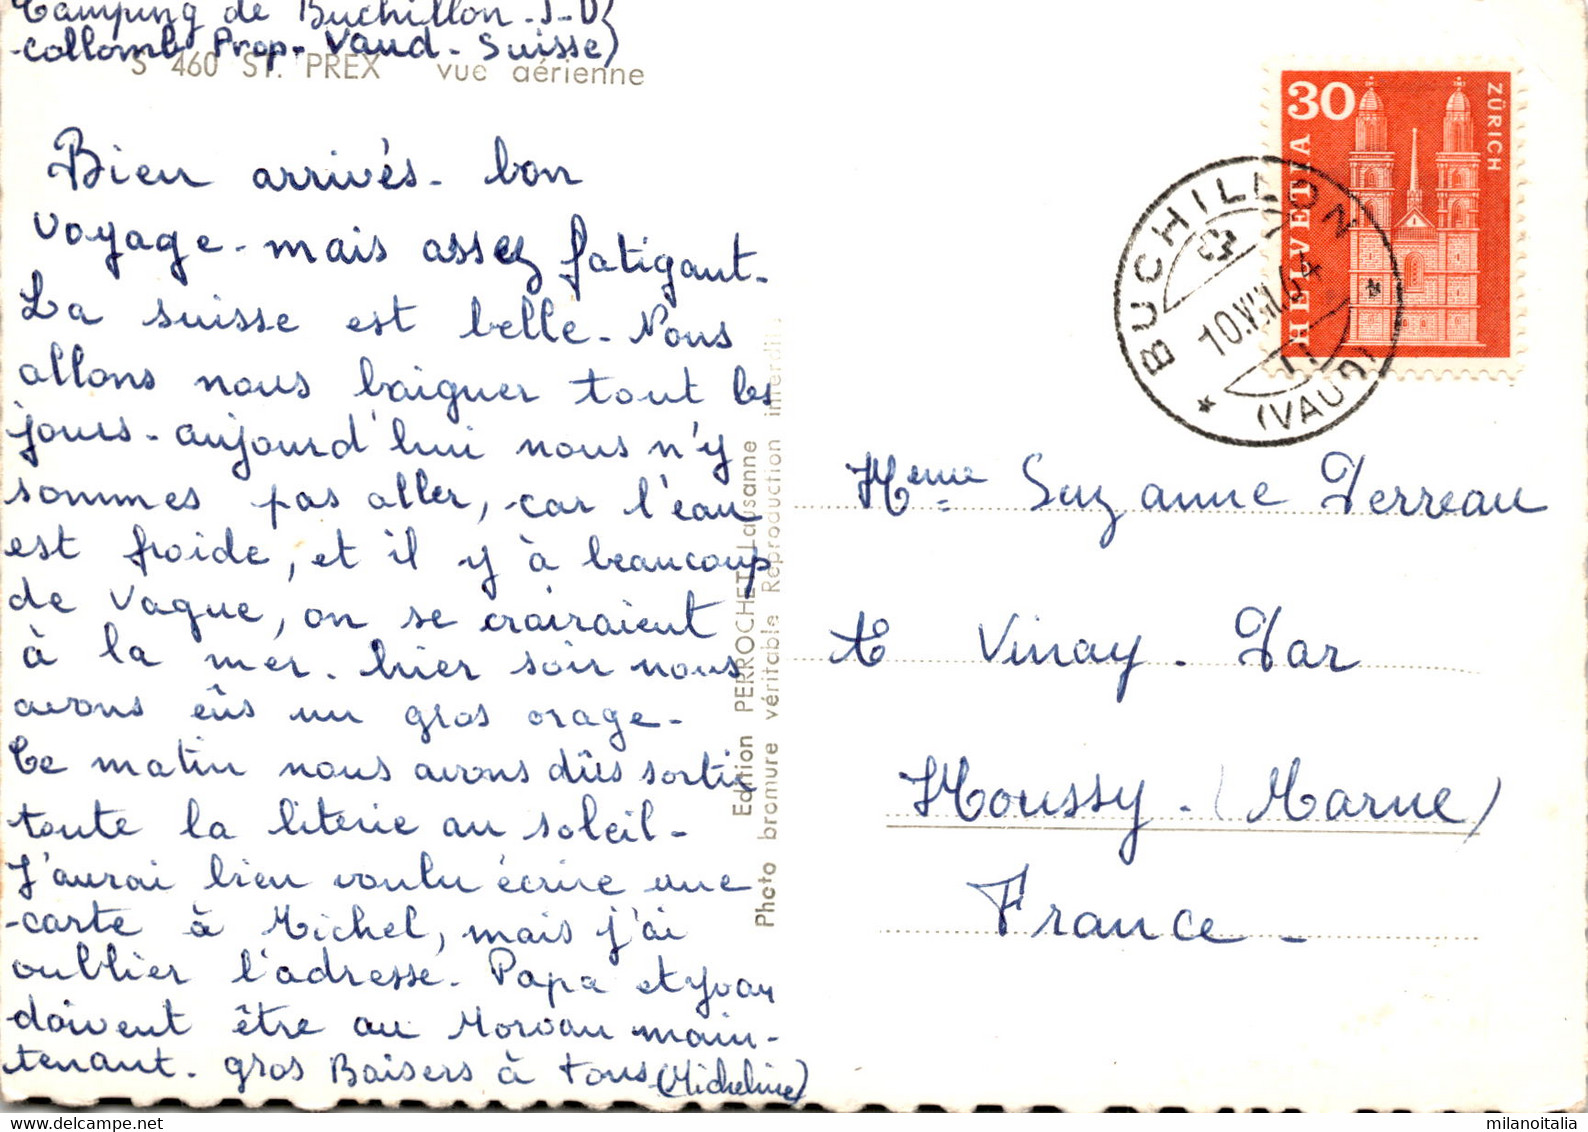 Camping de Buchillon - J-D
-Collomb Prop- Vaud - Suisse)
S 460 ST. PREX vue aérienne
Bien arrivés - bon
voyage - mais assez fatigant -
La suisse est belle - Nous
allons nous baigner tout les
jours - aujourd'hui nous n'y
sommes pas aller, -car l'eau
est froide, et il y à beaucoup
de vague, on se crairaient
à la mer. hier soir nous
avons eûs un gros orage -
Ce matin nous avons dûs sortir
toute la literie au soleil -
J'aurai bien voulu écrire une
-carte à Michel, mais j'ai
oublier l'adresse. Papa et yvan
doivent être au Morvan main-
tenant. gros Baisers à tous (Micheline)
Edition PERROCHET Lausanne
Photo bromure véritable Reproduction interdite
30
HELVETIA
ZÜRICH
BUCHILLON
10.VIII.64
(VAUD)
Meme Suzanne Perreau
à Vinay - Par
Moussy - (Marne)
France -
milanoitalia